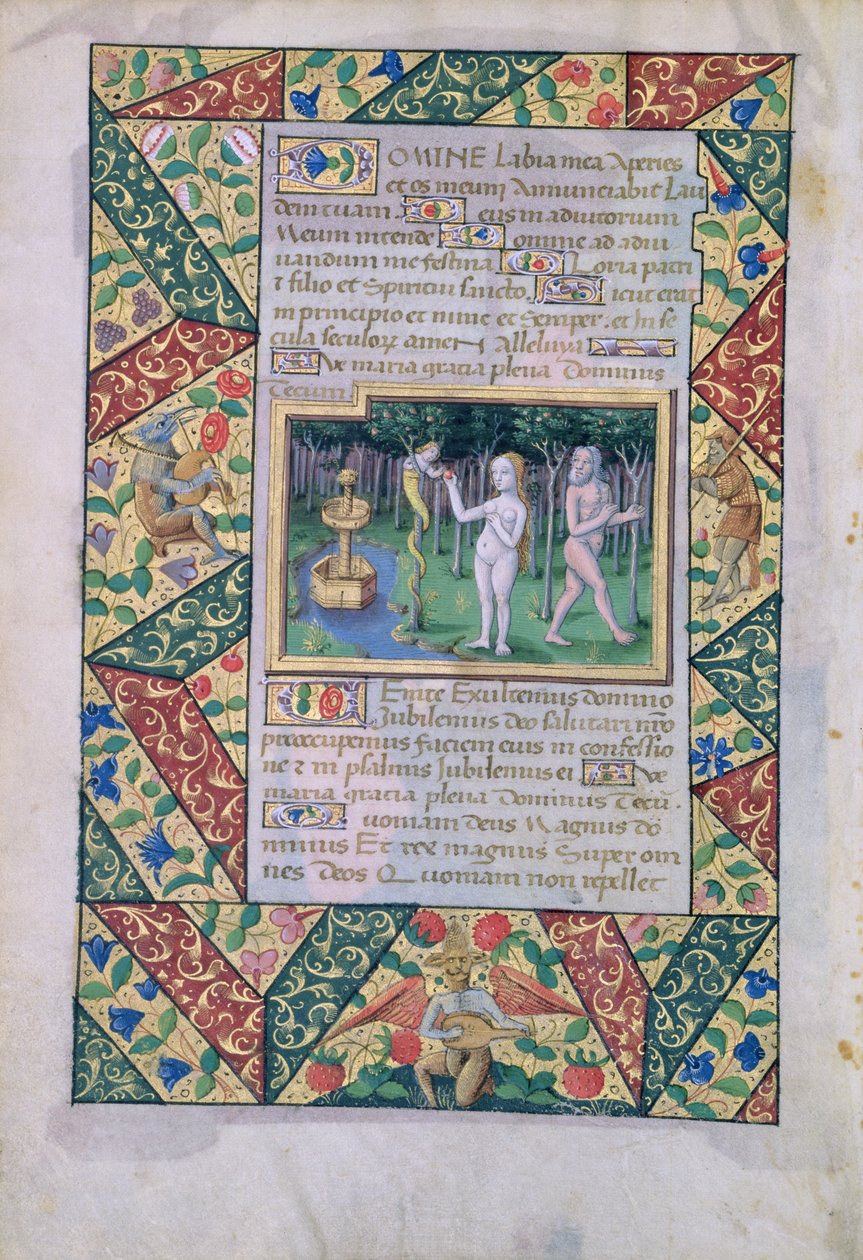 DOMINE Labia mea Aperies
et os meum Annunciabit Lau
dem tuam. Deus in adiutorum
Meum intende Domine ad adiu
uandum me festina Gloria patri
⁊ filio et Spiritui sancto. Sicut erat
in principio et nunc et Semper. et In se
cula seculoꝝ amen Alleluya
Ave maria gracia plena Dominus
Tecum
Venite Exultemus domino
Jubilemus deo salutari nr̄o
preoccupemus faciem eius in confessio
ne ⁊ in psalmis Jubilemus ei Ave
maria gracia plena Dominus Tecū.
Quoniam deus Magnus do
minus Et rex magnus Super om
nes Deos Quoniam non repellet